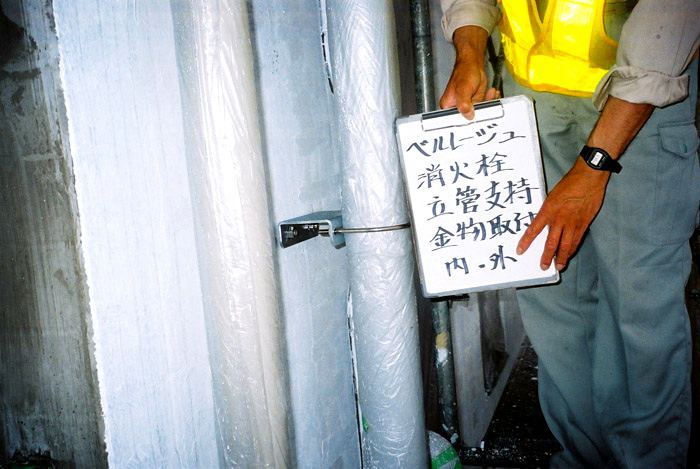 ベルレージュ
消火栓
立管支持
金物取付
内・外